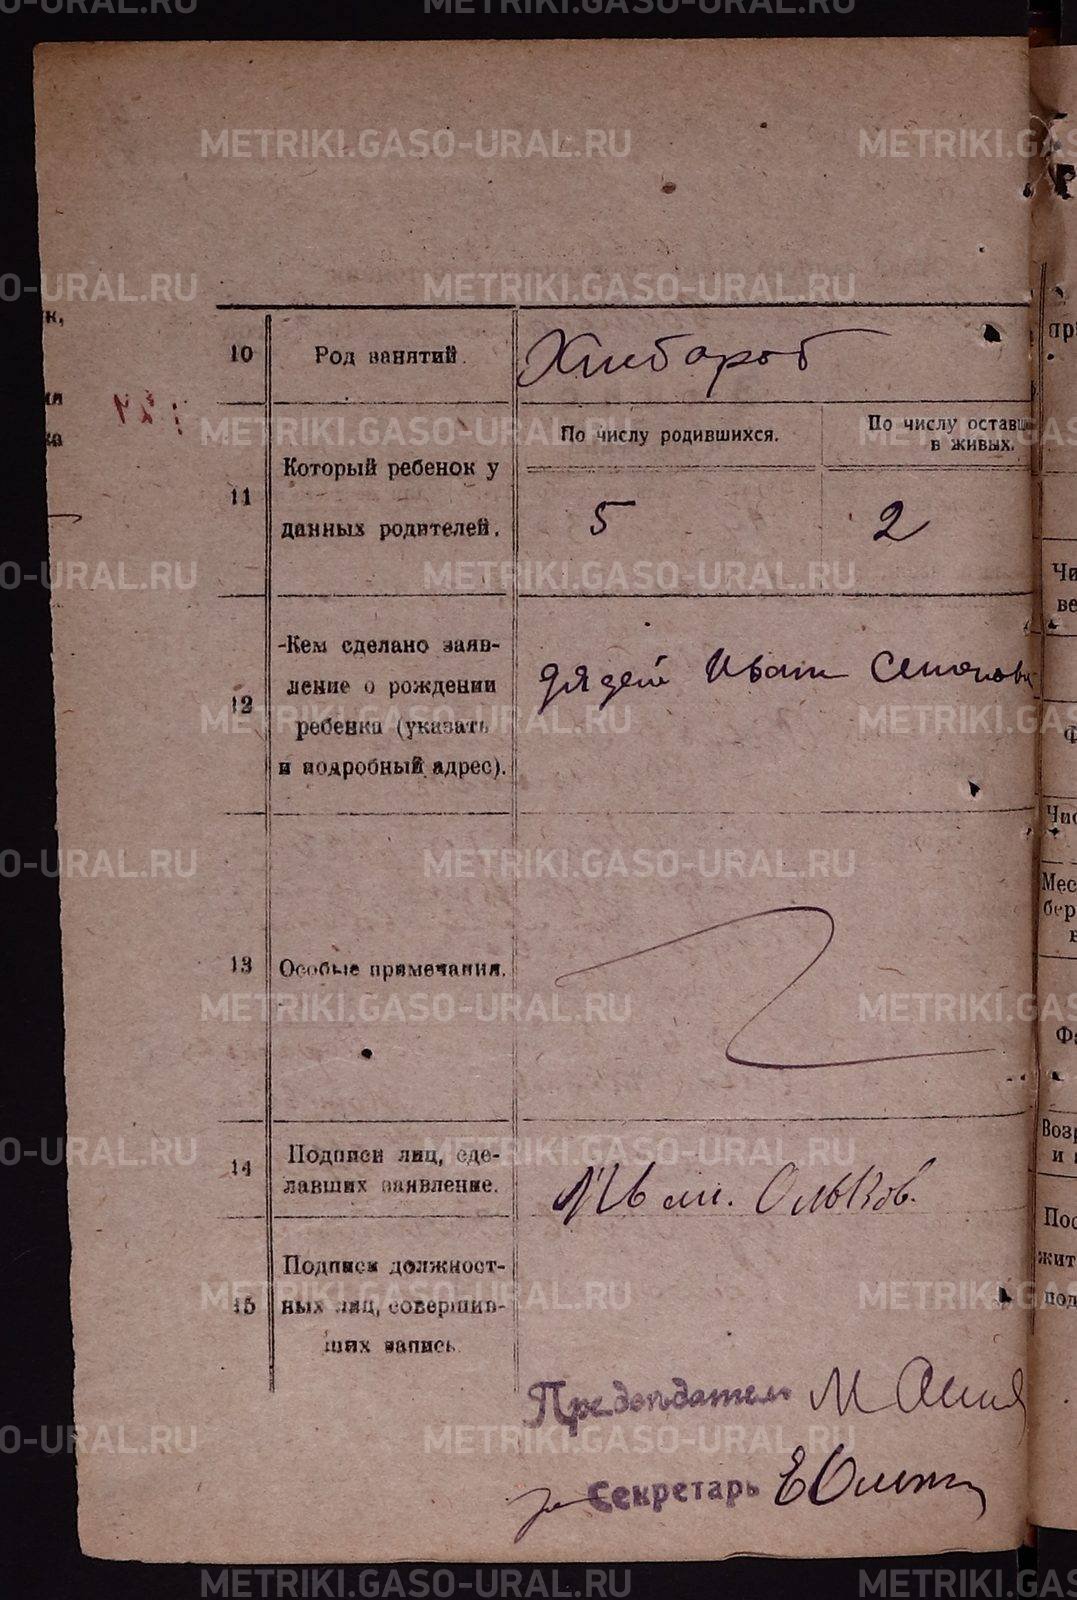 METRIKI.GASO-URAL.RU
10 Род занятий. Хлебороб
11 Который ребенок у данных родителей.
По числу родившихся. По числу остав
в живых.
5 2
12 Кем сделано заяв-
ление о рождении
ребенка (указать
и подробный адрес).
дядей Иван Семенови
13 Особые примечания.
14 Подписи лиц, сде-
лавших заявление.
Ив Ольков.
15 Подписи должност-
ных лиц, совершив-
ших запись.
Председатель М
за Секретарь Е